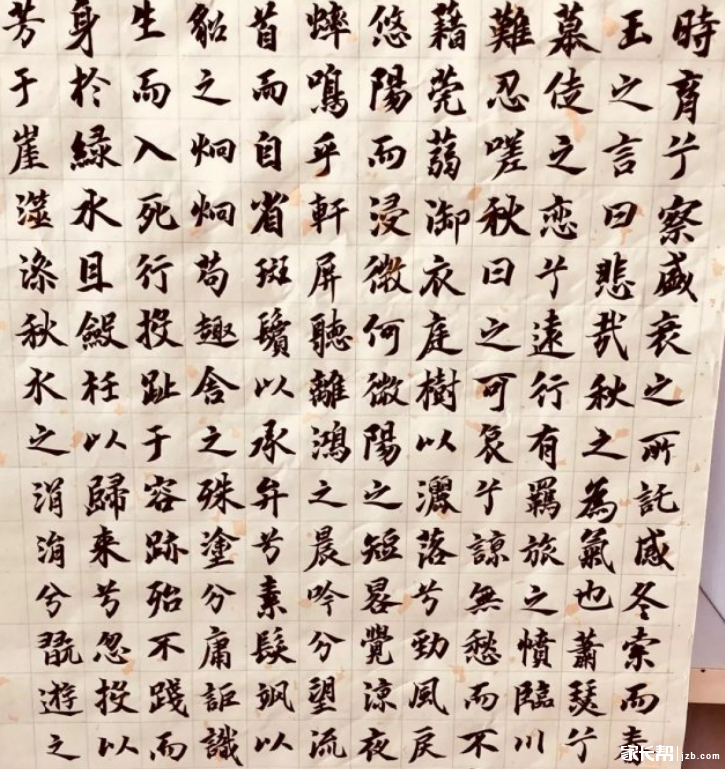 時育兮察盛衰之所託感冬索而春
玉之言曰悲哉秋之為氣也蕭瑟兮
慕徒之恋兮遠行有羈旅之憤臨川
難忍嗟秋日之可哀兮諒無愁而不
藉莞蒻御衣庭樹以灑落兮勁風戾
悠陽而浸微何微陽之短晷覺涼夜
蟀鳴乎軒屏聽離鴻之晨吟兮望流
首而自省斑鬢以承弁兮素髮颯以
貂之炯炯苟趣舍之殊塗兮庸詎識
生而入死行投趾于容跡殆不踐而
身於綠水且斂衽以歸來兮忽投以
芳于崖澨滌秋水之涓涓兮翫遊之
家长帮|jzb.com